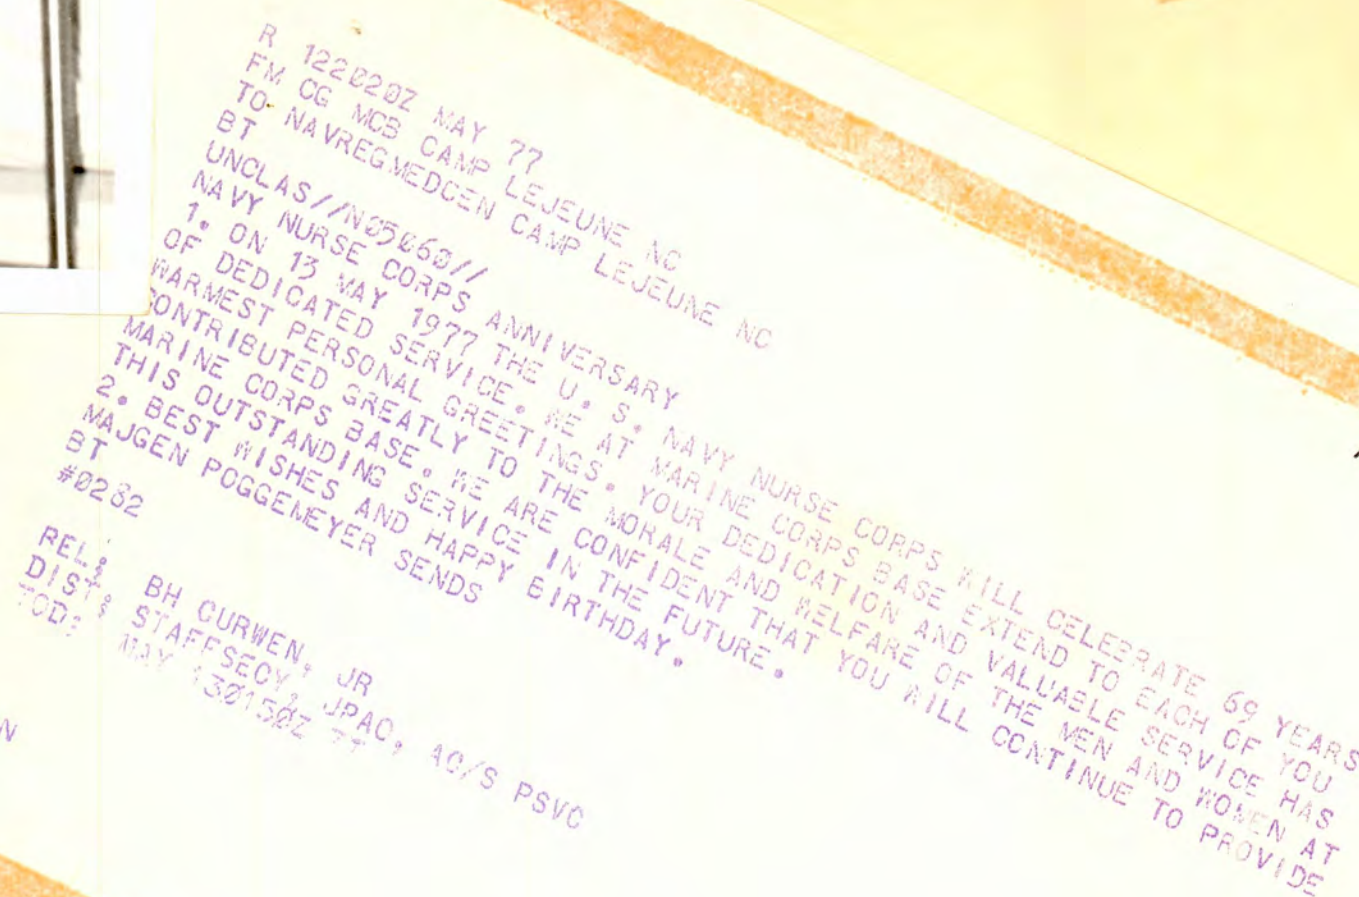 R 122020Z MAY 77
FM CG MCB CAMP LEJEUNE NC
TO NAVREGMEDCEN CAMP LEJEUNE NC
BT
UNCLAS//N05060//
NAVY NURSE CORPS ANNIVERSARY
1. ON 13 MAY 1977 THE U. S. NAVY NURSE CORPS WILL CELEBRATE 69 YEARS
OF DEDICATED SERVICE. WE AT MARINE CORPS BASE EXTEND TO EACH OF YOU
WARMEST PERSONAL GREETINGS. YOUR DEDICATION AND VALUABLE SERVICE HAS
CONTRIBUTED GREATLY TO THE MORALE AND WELFARE OF THE MEN AND WOMEN AT
MARINE CORPS BASE. WE ARE CONFIDENT THAT YOU WILL CONTINUE TO PROVIDE
THIS OUTSTANDING SERVICE IN THE FUTURE.
2. BEST WISHES AND HAPPY BIRTHDAY.
MAJGEN POGGEMEYER SENDS
BT
#0282
REL: BH CURWEN, JR
DIST: STAFFSECY, JPAO, AC/S PSVC
TOD: MAY 130150Z 77
N